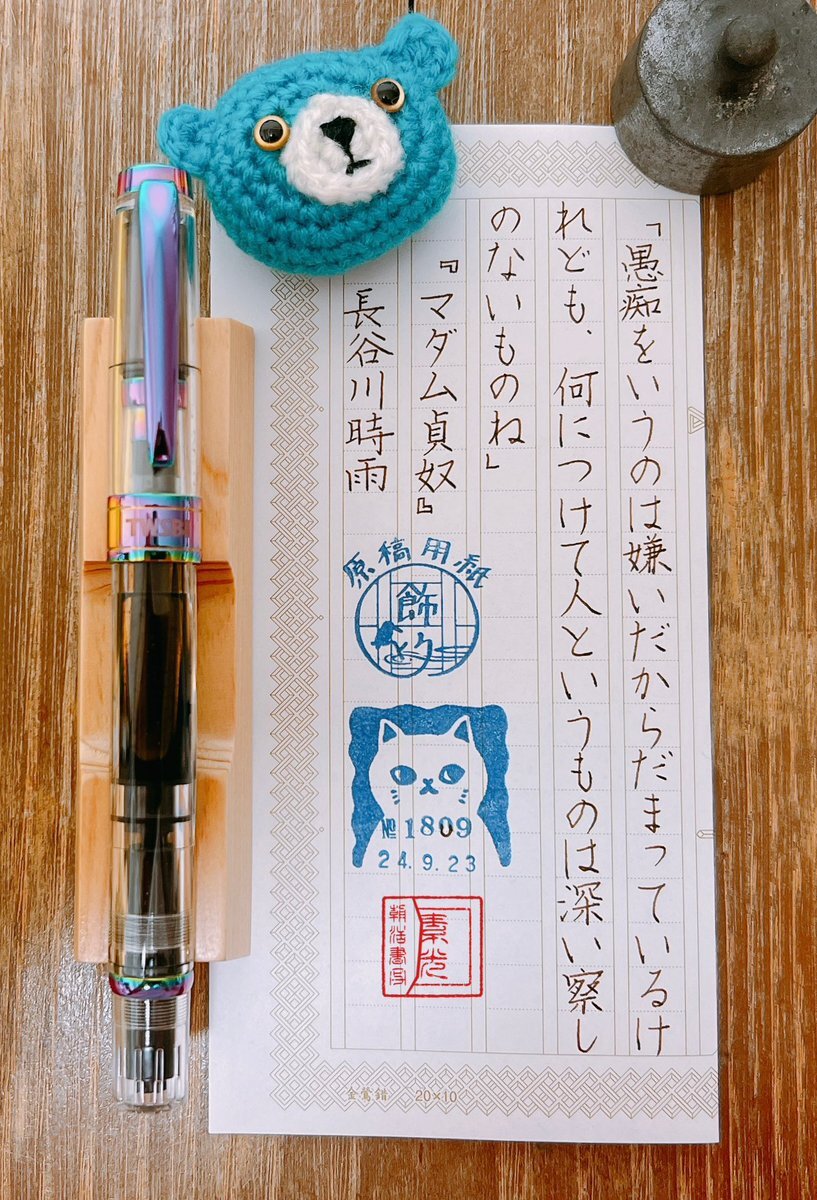 「愚痴をいうのは嫌いだからだまっているけ
れども、何につけて人というものは深い察し
のないものね」
『マダム貞奴』
長谷川時雨
原稿用紙
飾り
№1809
24.9.23
素光
朝活書写
20×10
TWSBI